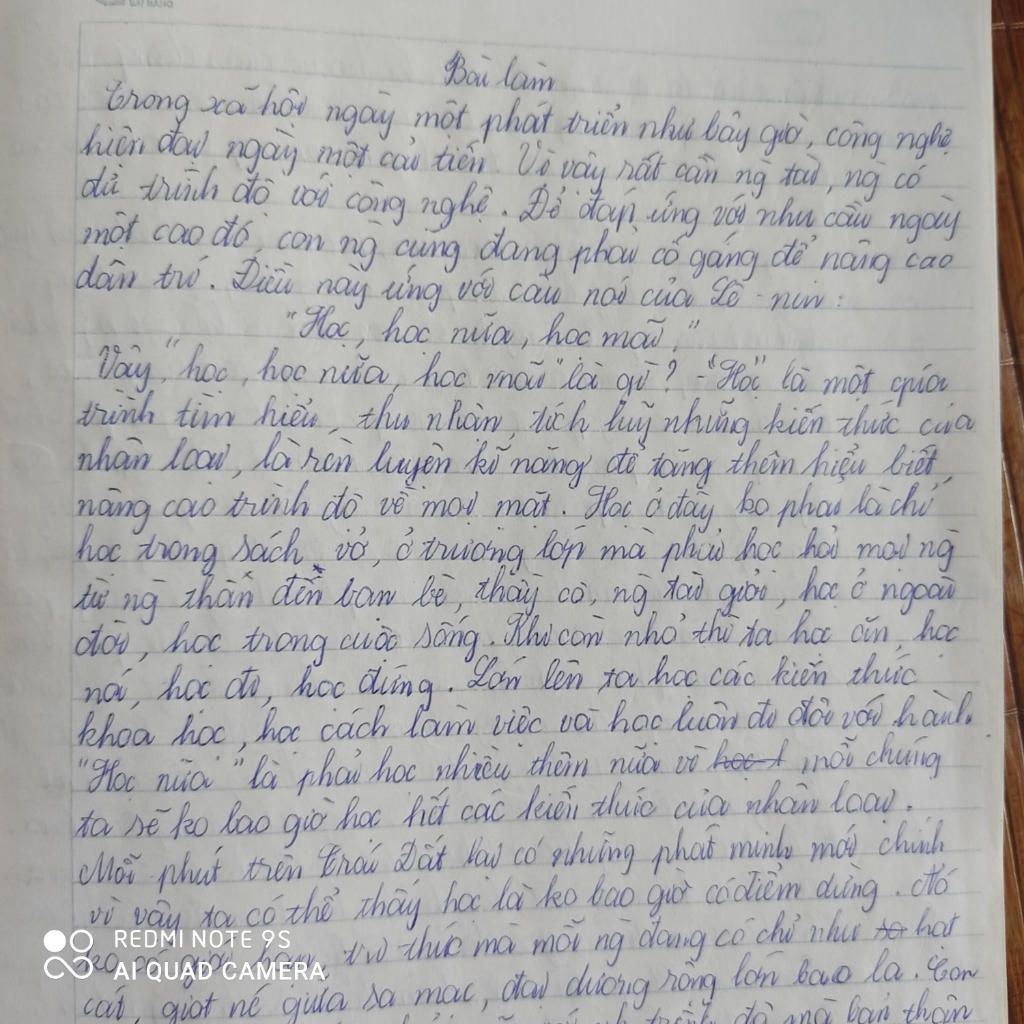 Bài làm
Trong xã hội ngày một phát triển như bây giờ, công nghệ
hiện đại ngày một cải tiến. Vì vậy rất cần ng tài, ng có
đủ trình độ với công nghệ. Để đáp ứng với nhu cầu ngày
một cao đó, con ng cũng đang phải cố gắng để nâng cao
dân trí. Điều này ứng với câu nói của Lê-nin:
"Học, học nữa, học mãi."
Vậy "học, học nữa, học mãi" là gì? - "Học" là một quá
trình tìm hiểu, thu nhận, tích luỹ những kiến thức của
nhân loại, là rèn luyện kĩ năng để tăng thêm hiểu biết,
nâng cao trình độ về mọi mặt. Học ở đây ko phải là chỉ
học trong sách vở, ở trường lớp mà phải học hỏi mọi ng
từ ng thân đến bạn bè, thầy cô, ng tài giỏi, học ở ngoài
đời, học trong cuộc sống. Khi còn nhỏ thì ta học ăn, học
nói, học đi, học đứng. Lớn lên ta học các kiến thức
khoa học, học cách làm việc và học luôn đi đôi với hành.
"Học nữa" là phải học nhiều thêm nữa vì mỗi chúng
ta sẽ ko bao giờ học hết các kiến thức của nhân loại.
Mỗi phút trên Trái Đất lại có những phát minh mới chính
vì vậy ta có thể thấy học là ko bao giờ có điểm dừng. Nó
ko có giới hạn, tri thức mà mỗi ng đang có chỉ như hạt
cát, giọt nước giữa sa mạc, đại dương rộng lớn bao la. Con
trình độ mà bản thân
REDMI NOTE 9S
AI QUAD CAMERA